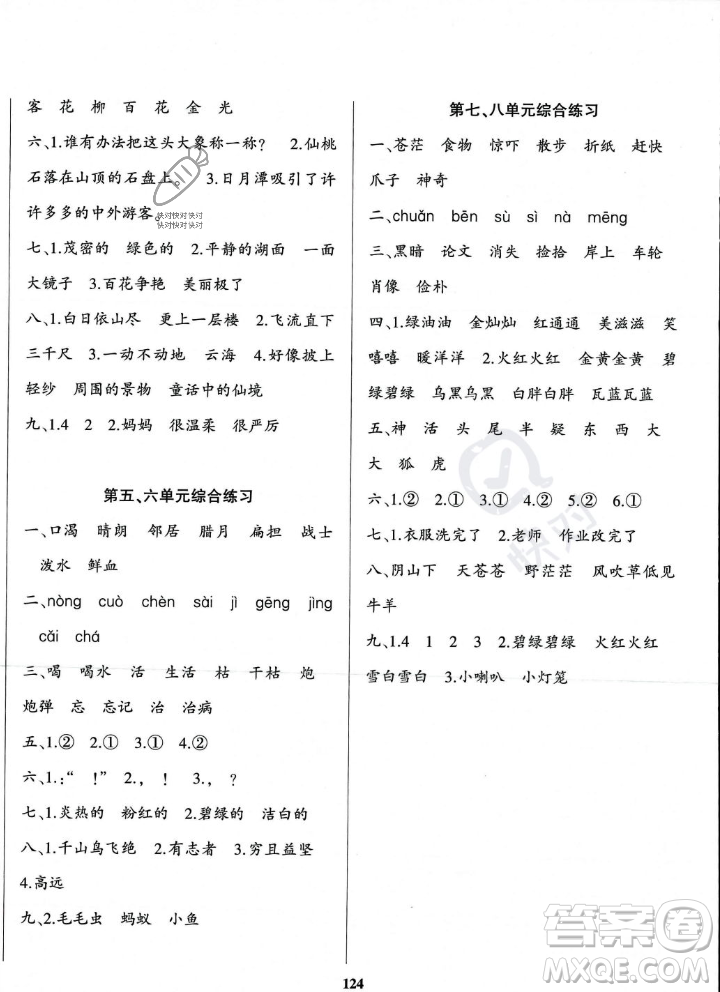 客 花 柳 百 花 金 光
六、1.谁有办法把这头大象称一称? 2.仙桃
石落在山顶的石盘上。 3.日月潭吸引了许
许多多的中外游客。
七、1.茂密的 绿色的 2.平静的湖面 一面
大镜子 3.百花争艳 美丽极了
八、1.白日依山尽 更上一层楼 2.飞流直下
三千尺 3.一动不动地 云海 4.好像披上
轻纱 周围的景物 童话中的仙境
九、1.4 2 2.妈妈 很温柔 很严厉
第五、六单元综合练习
一、口渴 晴朗 邻居 腊月 扁担 战士
泼水 鲜血
二、nòng cuò chèn sài jì gēng jìng
cǎi chá
三、喝 喝水 活 生活 枯 干枯 炮
炮弹 忘 忘记 治 治病
五、1.② 2.① 3.① 4.②
六、1.:“ !” 2., ! 3., ?
七、1.炎热的 粉红的 2.碧绿的 洁白的
八、1.千山鸟飞绝 2.有志者 3.穷且益坚
4.高远
九、2.毛毛虫 蚂蚁 小鱼
第七、八单元综合练习
一、苍茫 食物 惊吓 散步 折纸 赶快
爪子 神奇
二、chuǎn bēn sù sì nà mēng
三、黑暗 论文 消失 捡拾 岸上 车轮
肖像 俭朴
四、1.绿油油 金灿灿 红通通 美滋滋 笑
嘻嘻 暖洋洋 2.火红火红 金黄金黄 碧
绿碧绿 乌黑乌黑 白胖白胖 瓦蓝瓦蓝
五、神 活 头 尾 半 疑 东 西 大
大 狐 虎
六、1.② 2.① 3.① 4.② 5.② 6.①
七、1.衣服洗完了 2.老师 作业改完了
八、阴山下 天苍苍 野茫茫 风吹草低见
牛羊
九、1.4 1 2 3 2.碧绿碧绿 火红火红
雪白雪白 3.小喇叭 小灯笼
124
快对快对快对
快对快对快对
快对
答案圈
MXQE.COM